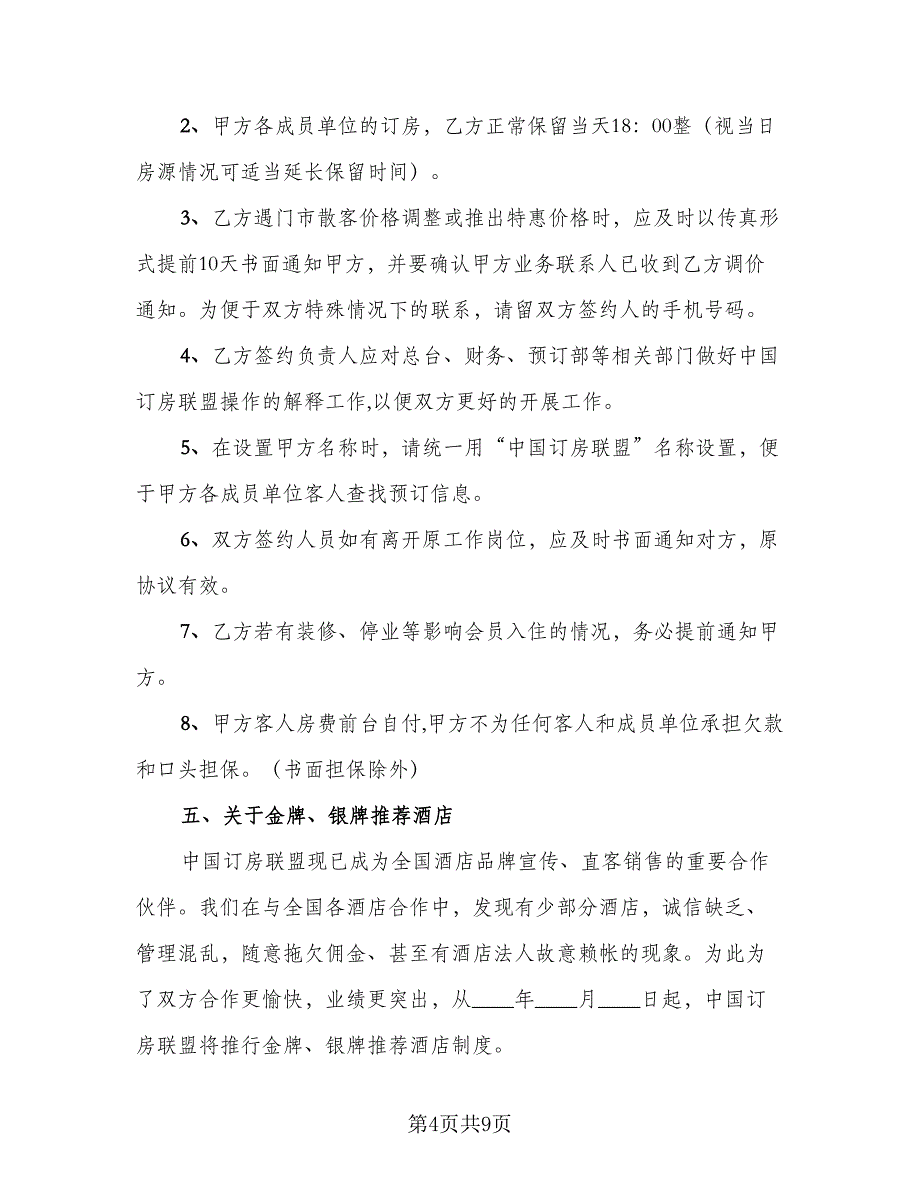 2、甲方各成员单位的订房，乙方正常保留当天18：00整（视当日
房源情况可适当延长保留时间）。
3、乙方遇门市散客价格调整或推出特惠价格时，应及时以传真形
式提前10天书面通知甲方，并要确认甲方业务联系人已收到乙方调价
通知。为便于双方特殊情况下的联系，请留双方签约人的手机号码。
4、乙方签约负责人应对总台、财务、预订部等相关部门做好中国
订房联盟操作的解释工作,以便双方更好的开展工作。
5、在设置甲方名称时，请统一用“中国订房联盟”名称设置，便
于甲方各成员单位客人查找预订信息。
6、双方签约人员如有离开原工作岗位，应及时书面通知对方，原
协议有效。
7、乙方若有装修、停业等影响会员入住的情况，务必提前通知甲
方。
8、甲方客人房费前台自付,甲方不为任何客人和成员单位承担欠款
和口头担保。（书面担保除外）
五、关于金牌、银牌推荐酒店
中国订房联盟现已成为全国酒店品牌宣传、直客销售的重要合作
伙伴。我们在与全国各酒店合作中，发现有少部分酒店，诚信缺乏、
管理混乱，随意拖欠佣金、甚至有酒店法人故意赖帐的现象。为此为
了双方合作更愉快，业绩更突出，从____年____月____日起，中国订
房联盟将推行金牌、银牌推荐酒店制度。
第4页共9页